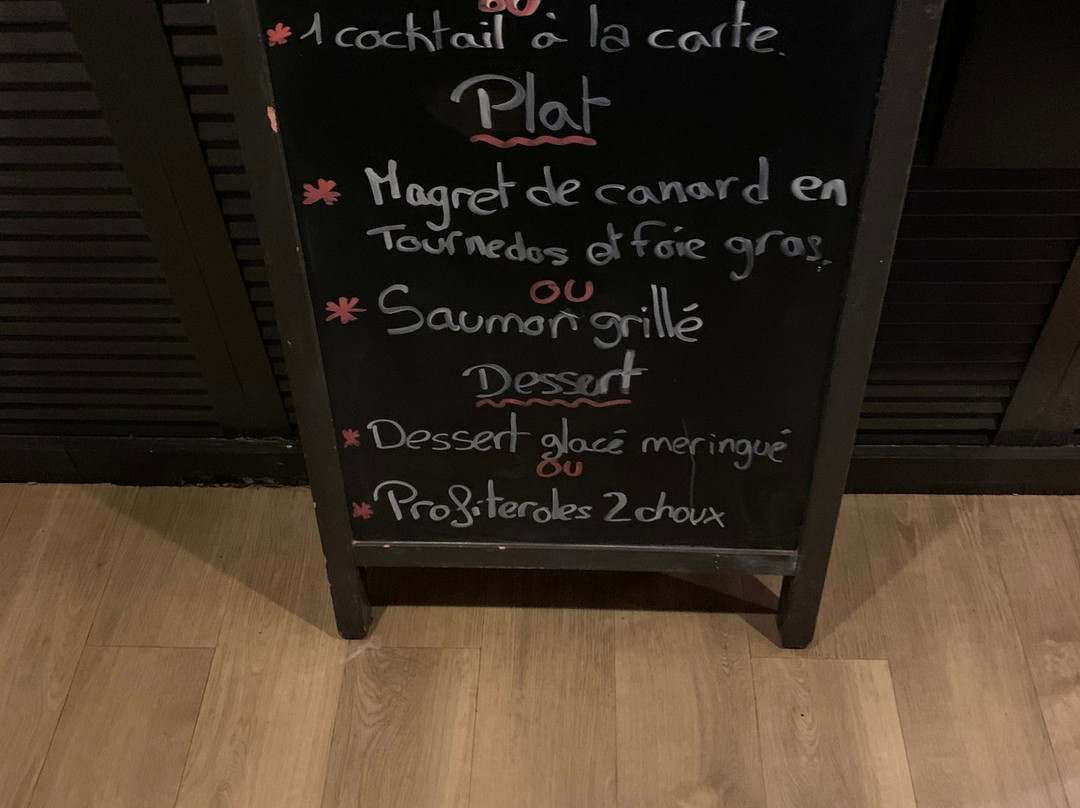 OU
* 1 cocktail à la carte.
Plat
* Magret de canard en
Tournedos et foie gras.
OU
* Saumon grillé
Dessert
* Dessert glacé meringué
OU
* Profiteroles 2 choux